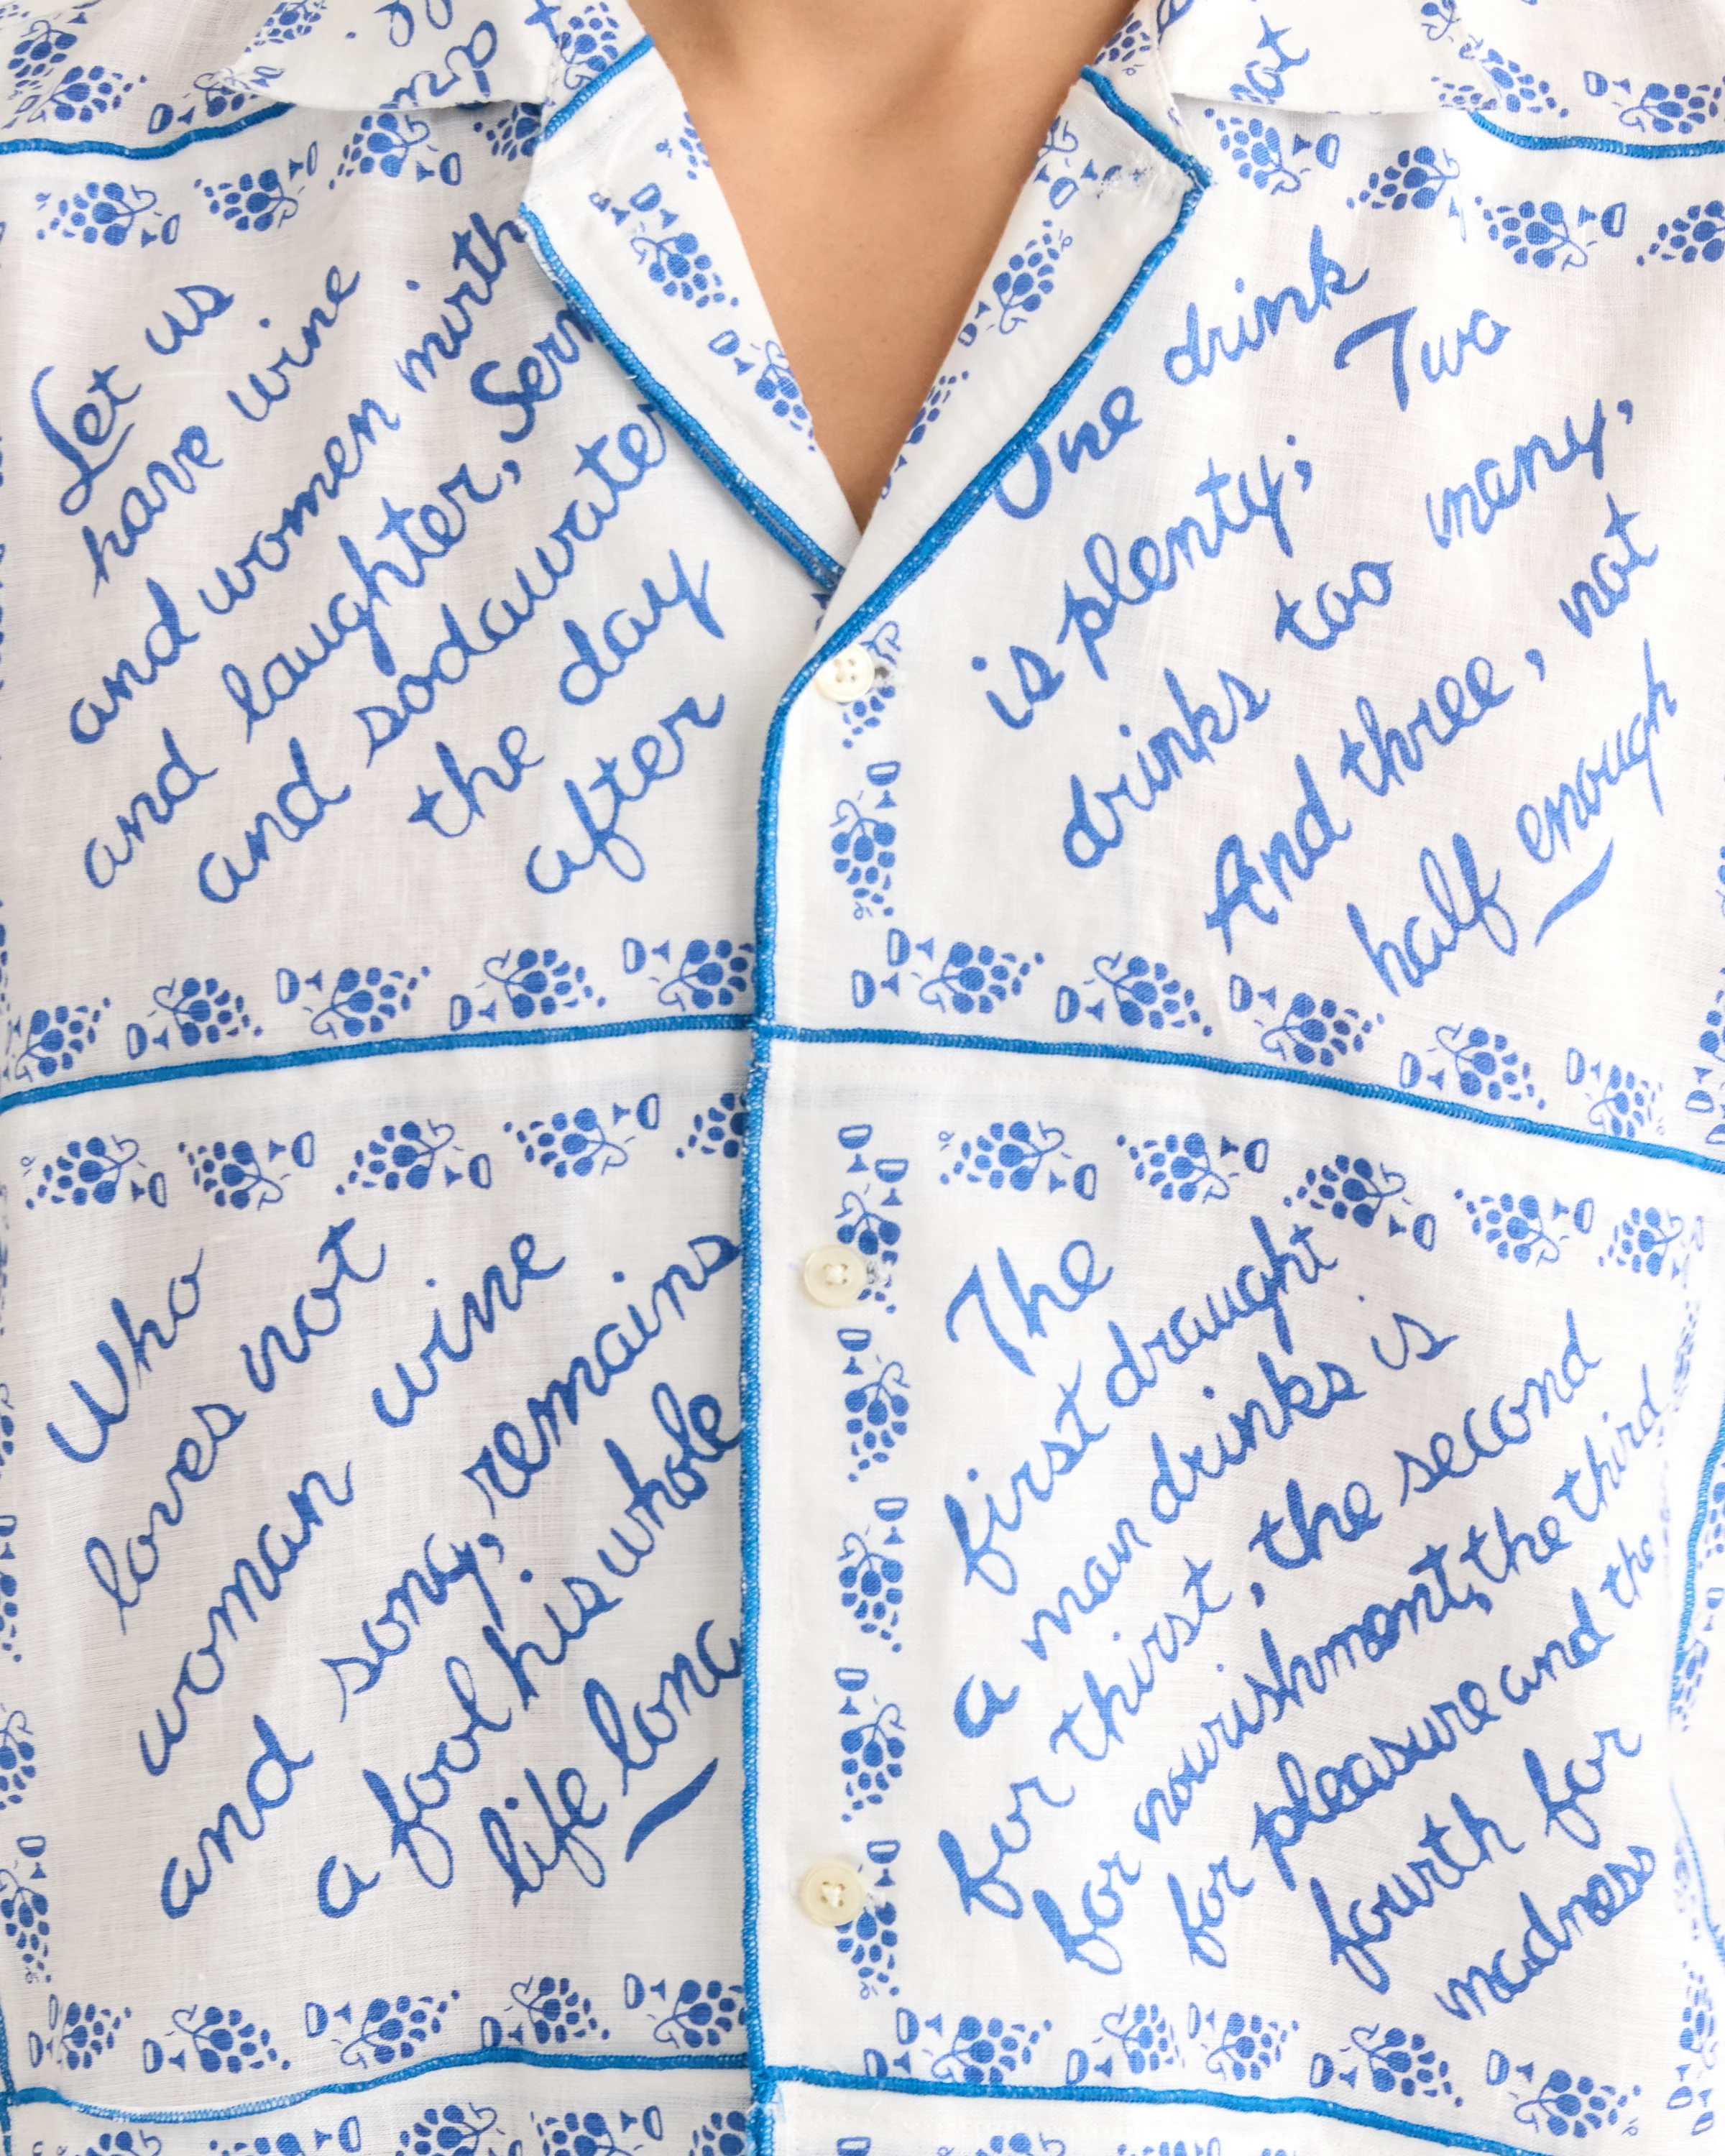 up
not
Let us
have wine
and women mirth
and laughter, Ser
and sodawater
the day
after
One drink
is plenty; Two
drinks too many,
And three, not
half enough
Who
loves not
woman wine
and song, remains
a fool his whole
life long
The
first draught
a man drinks is
for thirst, the second
for nourishment, the third
for pleasure and the
fourth for
madness